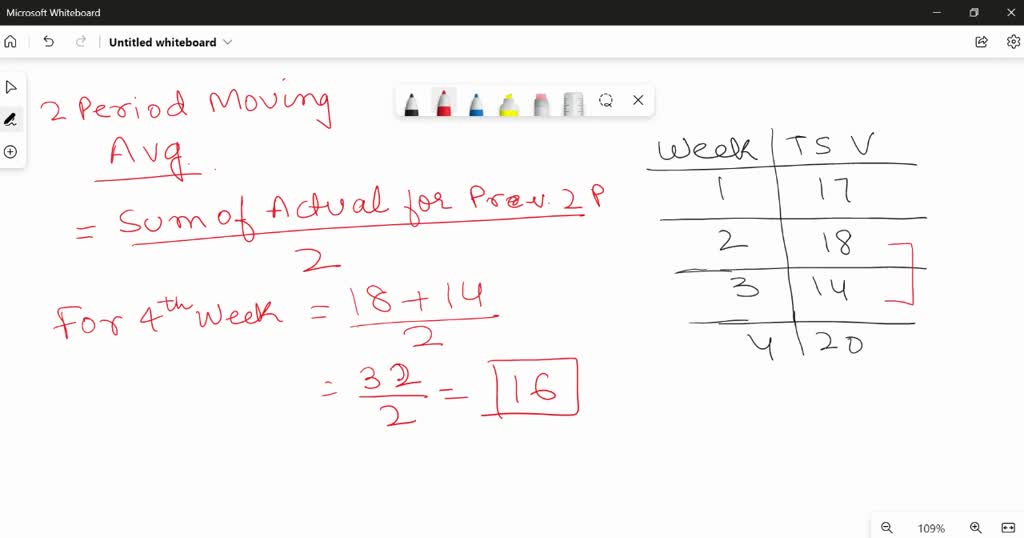 Microsoft Whiteboard
Untitled whiteboard
2 Period Moving
Avg.
= Sum of Actual for Prev. 2 P
2
For 4th Week = 18 + 14
2
= 32 = 16
2
Week TSV
1 17
2 18
3 14
4 20
109%